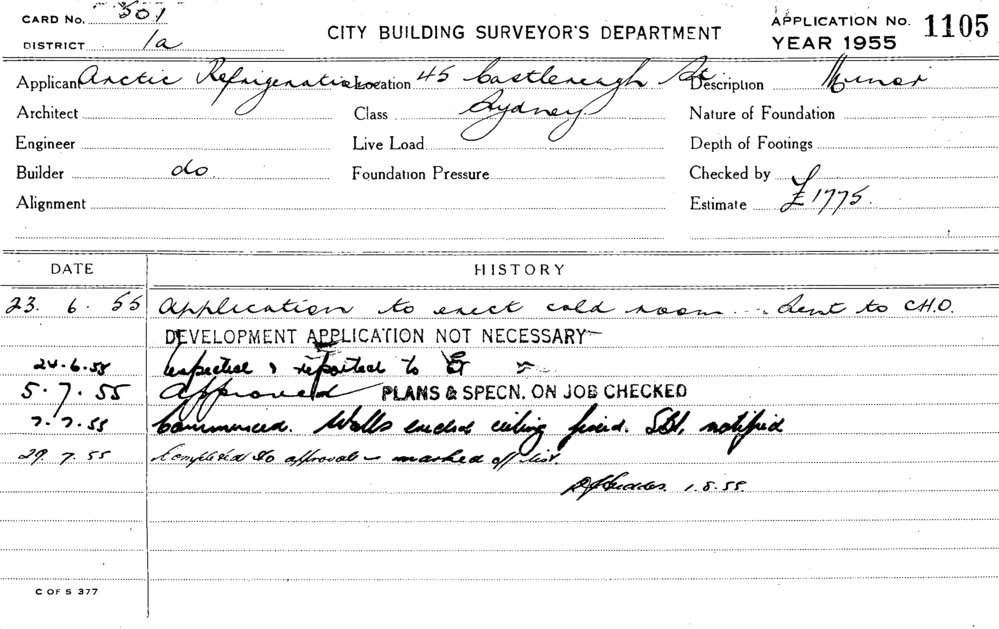 CARD No. 501
DISTRICT 1a
CITY BUILDING SURVEYOR'S DEPARTMENT
APPLICATION No. 1105
YEAR 1955
Applicant Arctic Refrigeration Location 45 Castlereagh St Description Minor
Architect Class Sydney Nature of Foundation
Engineer Live Load Depth of Footings
Builder do. Foundation Pressure Checked by
Alignment Estimate £1775.
DATE HISTORY
23. 6. 55 Application to erect cold room ... Sent to C.H.O.
DEVELOPMENT APPLICATION NOT NECESSARY
24.6.55 Inspected & reported to
5.7.55 Approved PLANS & SPECN. ON JOB CHECKED
7.7.55 Commenced. Walls erected ceiling fixed. notified
29.7.55 Completed to approval - marked off list.
1.8.55.
C OF S 377